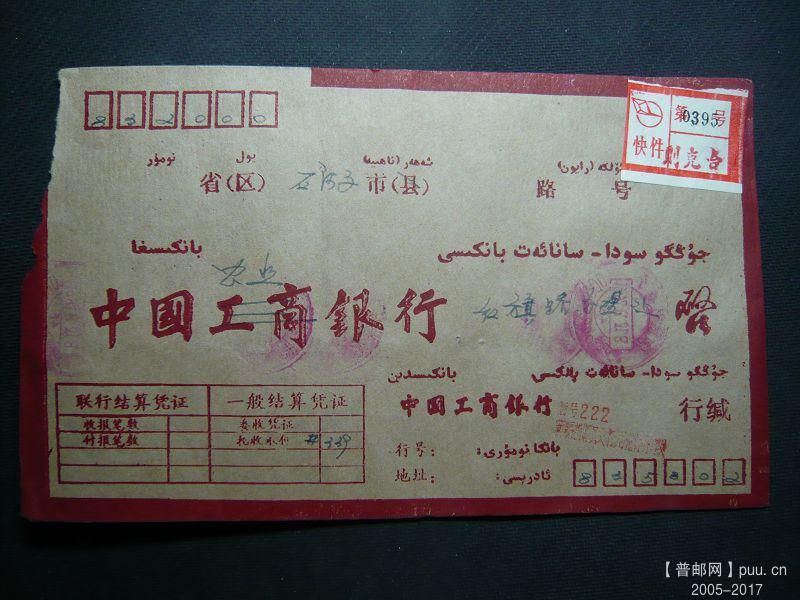 832000
第0395号
快件 刺克台
نومۇر يول شەھەر (ناھىيە) ئۆلكە (رايون)
省(区) 石河子 市(县) 路 号
بانكىسىغا جۇڭگو سودا - سانائەت بانكىسى
农业
中国工商銀行 红旗路
بانكىسىدىن جۇڭگو سودا - سانائەت بانكىسى
中国工商银行 行缄
行号222
联行结算凭证 一般结算凭证
收报笔数 委收凭证
付报笔数 托收承付 #339
行号: بانكا نومۇرى:
地址: ئادرېسى: 835802
【普邮网】puu.cn
2005-2017